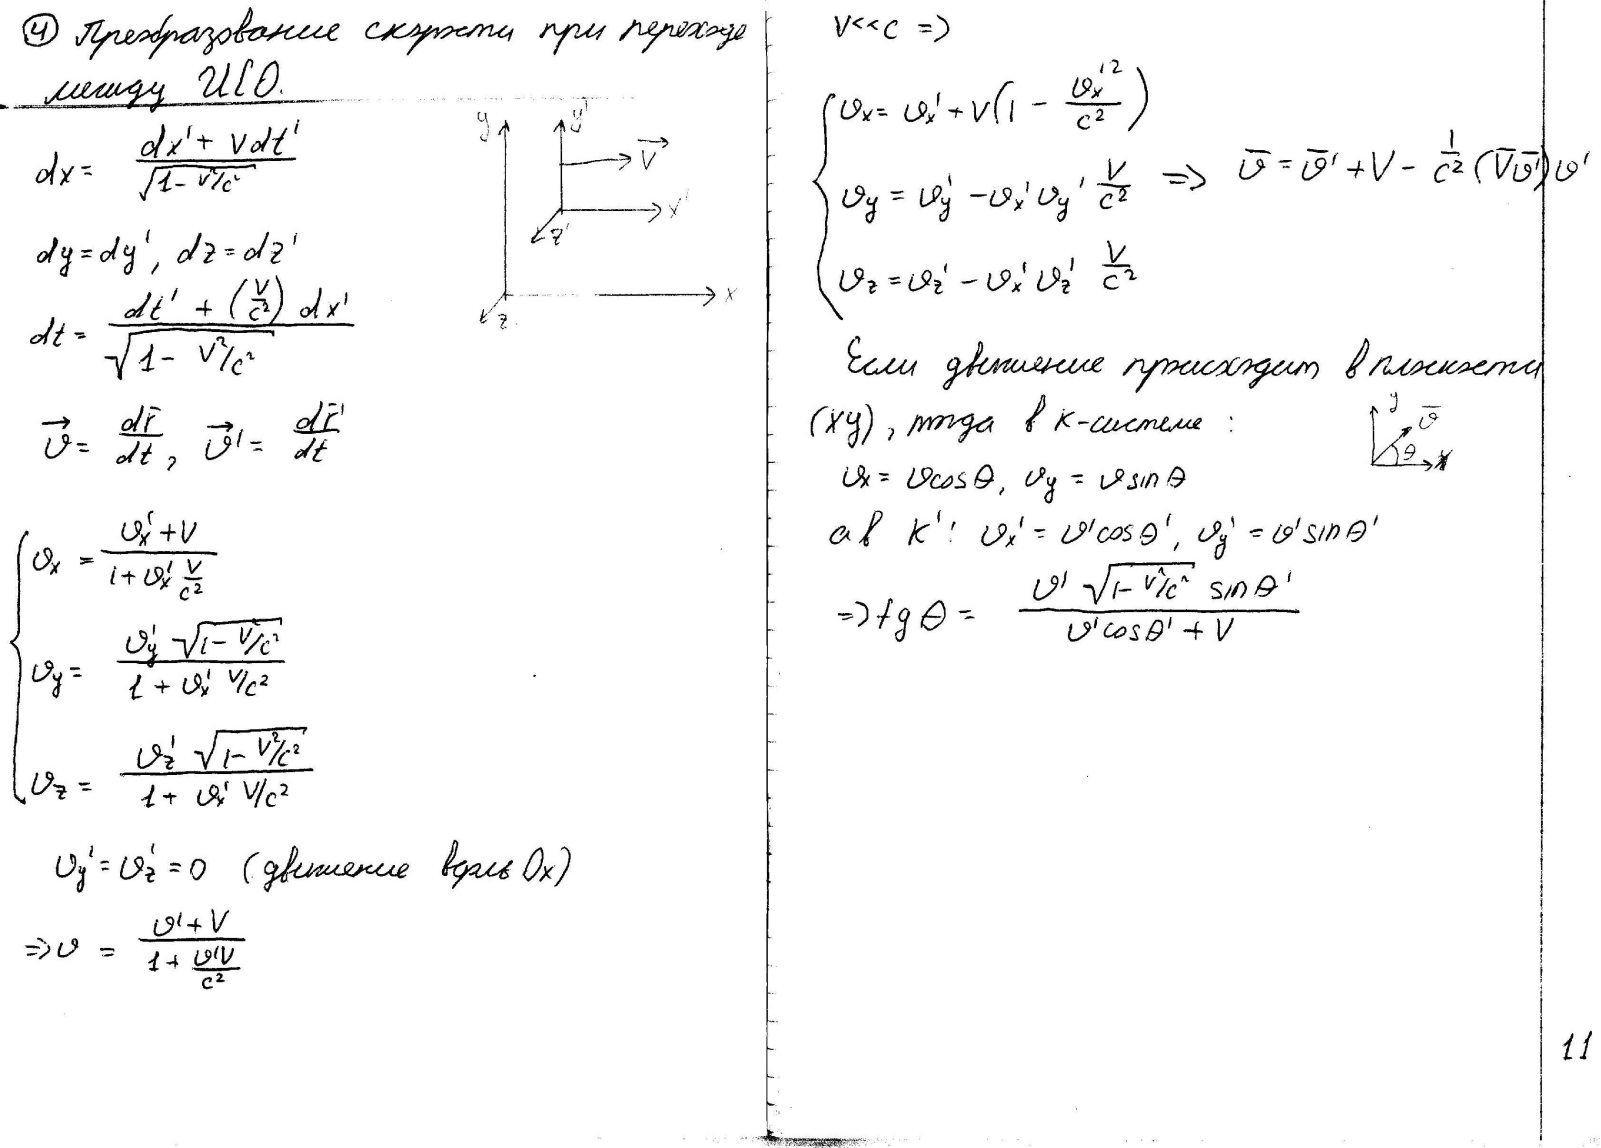 ④ Преобразование скорости при переходе
между ИСО.
dx = (dx' + Vdt') / √(1 - V²/c²)
dy = dy', dz = dz'
dt = (dt' + (V/c²) dx') / √(1 - V²/c²)
y y' V⃗ x' z' x z
v⃗ = dr̄/dt, v⃗' = dr̄'/dt
vx = (vx' + V) / (1 + vx' V/c²)
vy = (vy' √(1 - V²/c²)) / (1 + vx' V/c²)
vz = (vz' √(1 - V²/c²)) / (1 + vx' V/c²)
vy' = vz' = 0 (движение вдоль Ox)
=> v = (v' + V) / (1 + v'V/c²)
V<<c =>
vx = vx' + V(1 - vx'²/c²)
vy = vy' - vx' vy' V/c² => v̄ = v̄' + V - 1/c² (V̄v̄')v'
vz = vz' - vx' vz' V/c²
Если движение происходит в плоскости
(xy), тогда в K-системе :
y v̄ θ x
vx = vcosθ, vy = vsinθ
а в K': vx' = v'cosθ', vy' = v'sinθ'
=> tgθ = (v' √(1 - V²/c²) sinθ') / (v'cosθ' + V)
11